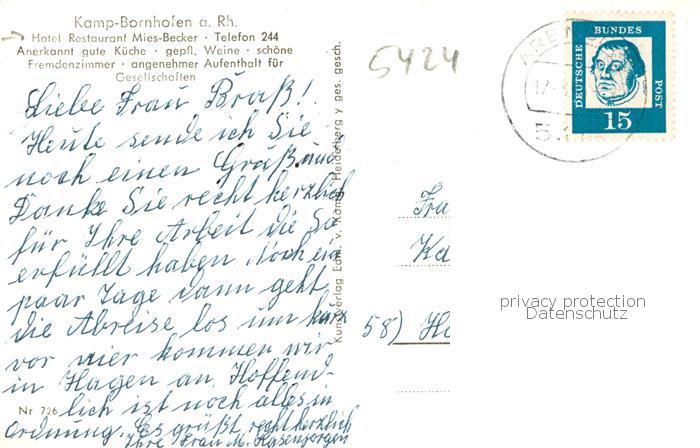 Kamp-Bornhofen a. Rh.
Hotel Restaurant Mies-Becker · Telefon 244
Anerkannt gute Küche · gepfl. Weine · schöne
Fremdenzimmer · angenehmer Aufenthalt für
Gesellschaften
5424
Liebe Frau Braß!
Heute sende ich Sie
noch einen Gruß und
Danke Sie recht herzlich
für Ihre Arbeit die Sie
erfüllt haben Noch ein
paar Tage dann geht
die Abreise los um kurz
vor vier kommen wir
in Hagen an. Hoffend-
lich ist noch alles in
Ordnung. Es grüßt recht herzlich
Ihre Frau M. Hasenjörgen
Nr 726
Kunstverlag Edm. v. König, Heidelberg y ges. gesch.
DEUTSCHE BUNDES POST
15
Fra
Ka
58) Ha
privacy protection
Datenschutz